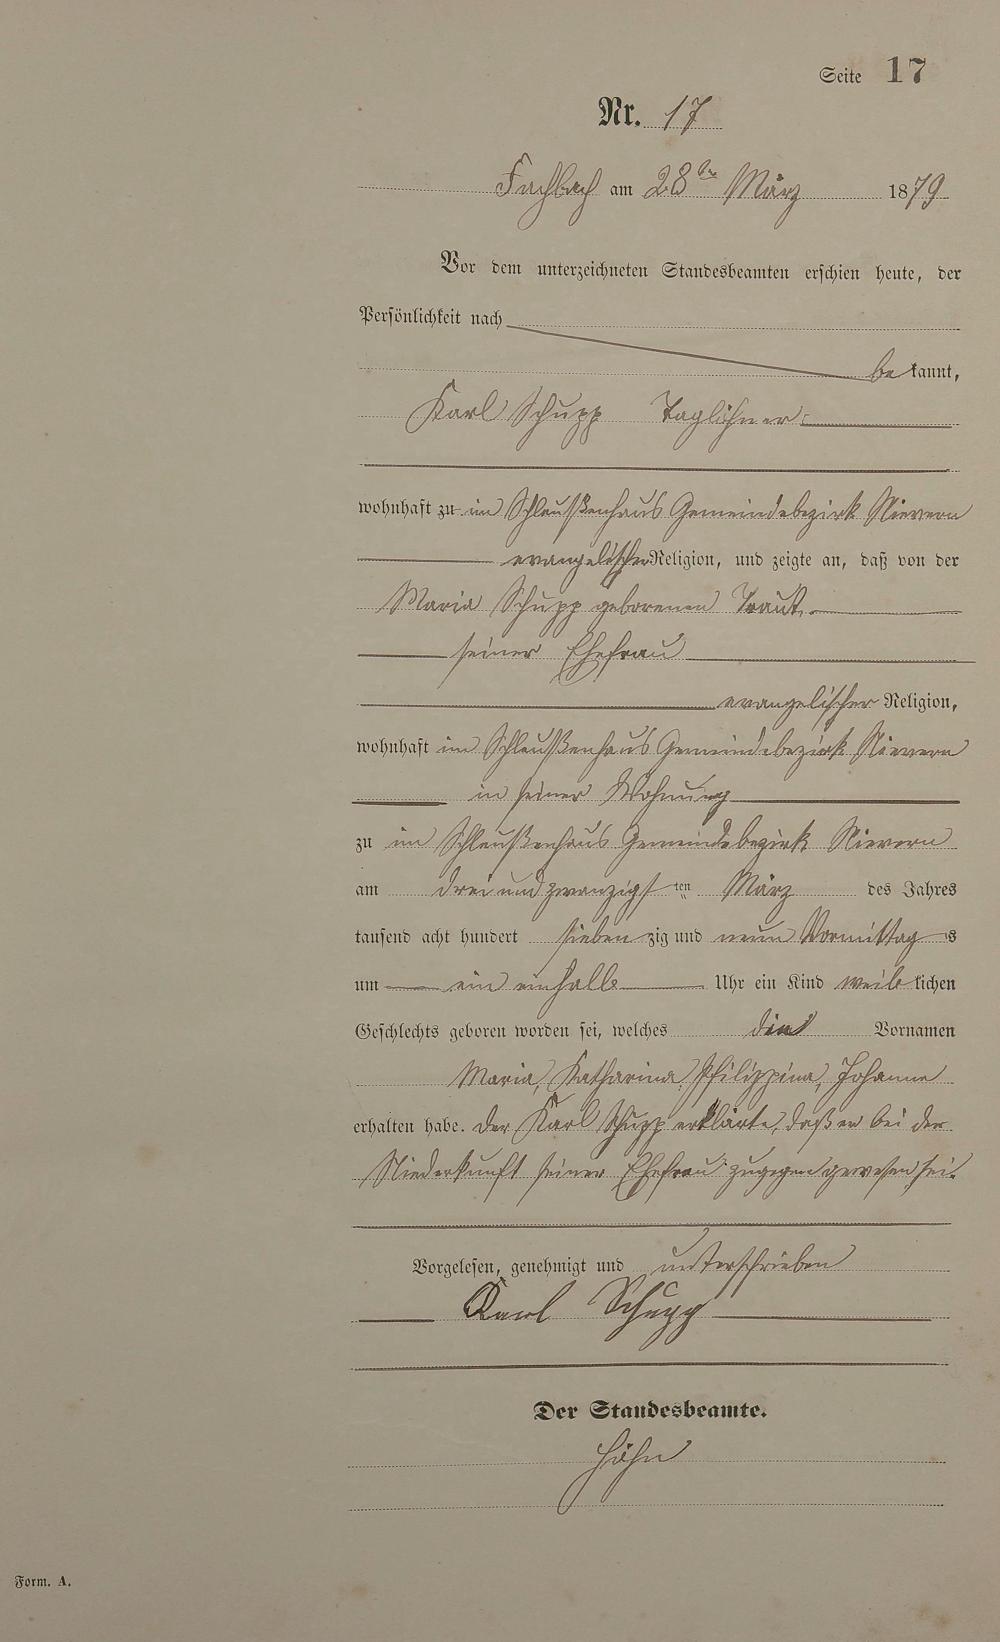 Seite 17
Nr. 17
Fachbach am 28ten März 1879
Vor dem unterzeichneten Standesbeamten erschien heute, der
Persönlichkeit nach
bekannt,
Karl Schupp Taglöhner
wohnhaft zu im Schleußenhaus Gemeindebezirk Nievern
evangelischer Religion, und zeigte an, daß von der
Maria Schupp geborenen Traut
seiner Ehefrau
evangelischer Religion,
wohnhaft im Schleußenhaus Gemeindebezirk Nievern
in seiner Wohnung
zu im Schleußenhaus Gemeindebezirk Nievern
am drei und zwanzigsten März des Jahres
tausend acht hundert siebenzig und neun Vormittags
um ein einhalb Uhr ein Kind weiblichen
Geschlechts geboren worden sei, welches die Vornamen
Maria, Katharina, Philippina, Johanne
erhalten habe. Der Karl Schupp erklärte, daß er bei der
Niederkunft seiner Ehefrau zugegen gewesen sei.
Vorgelesen, genehmigt und unterschrieben
Karl Schupp
Der Standesbeamte.
Höhn
Form. A.